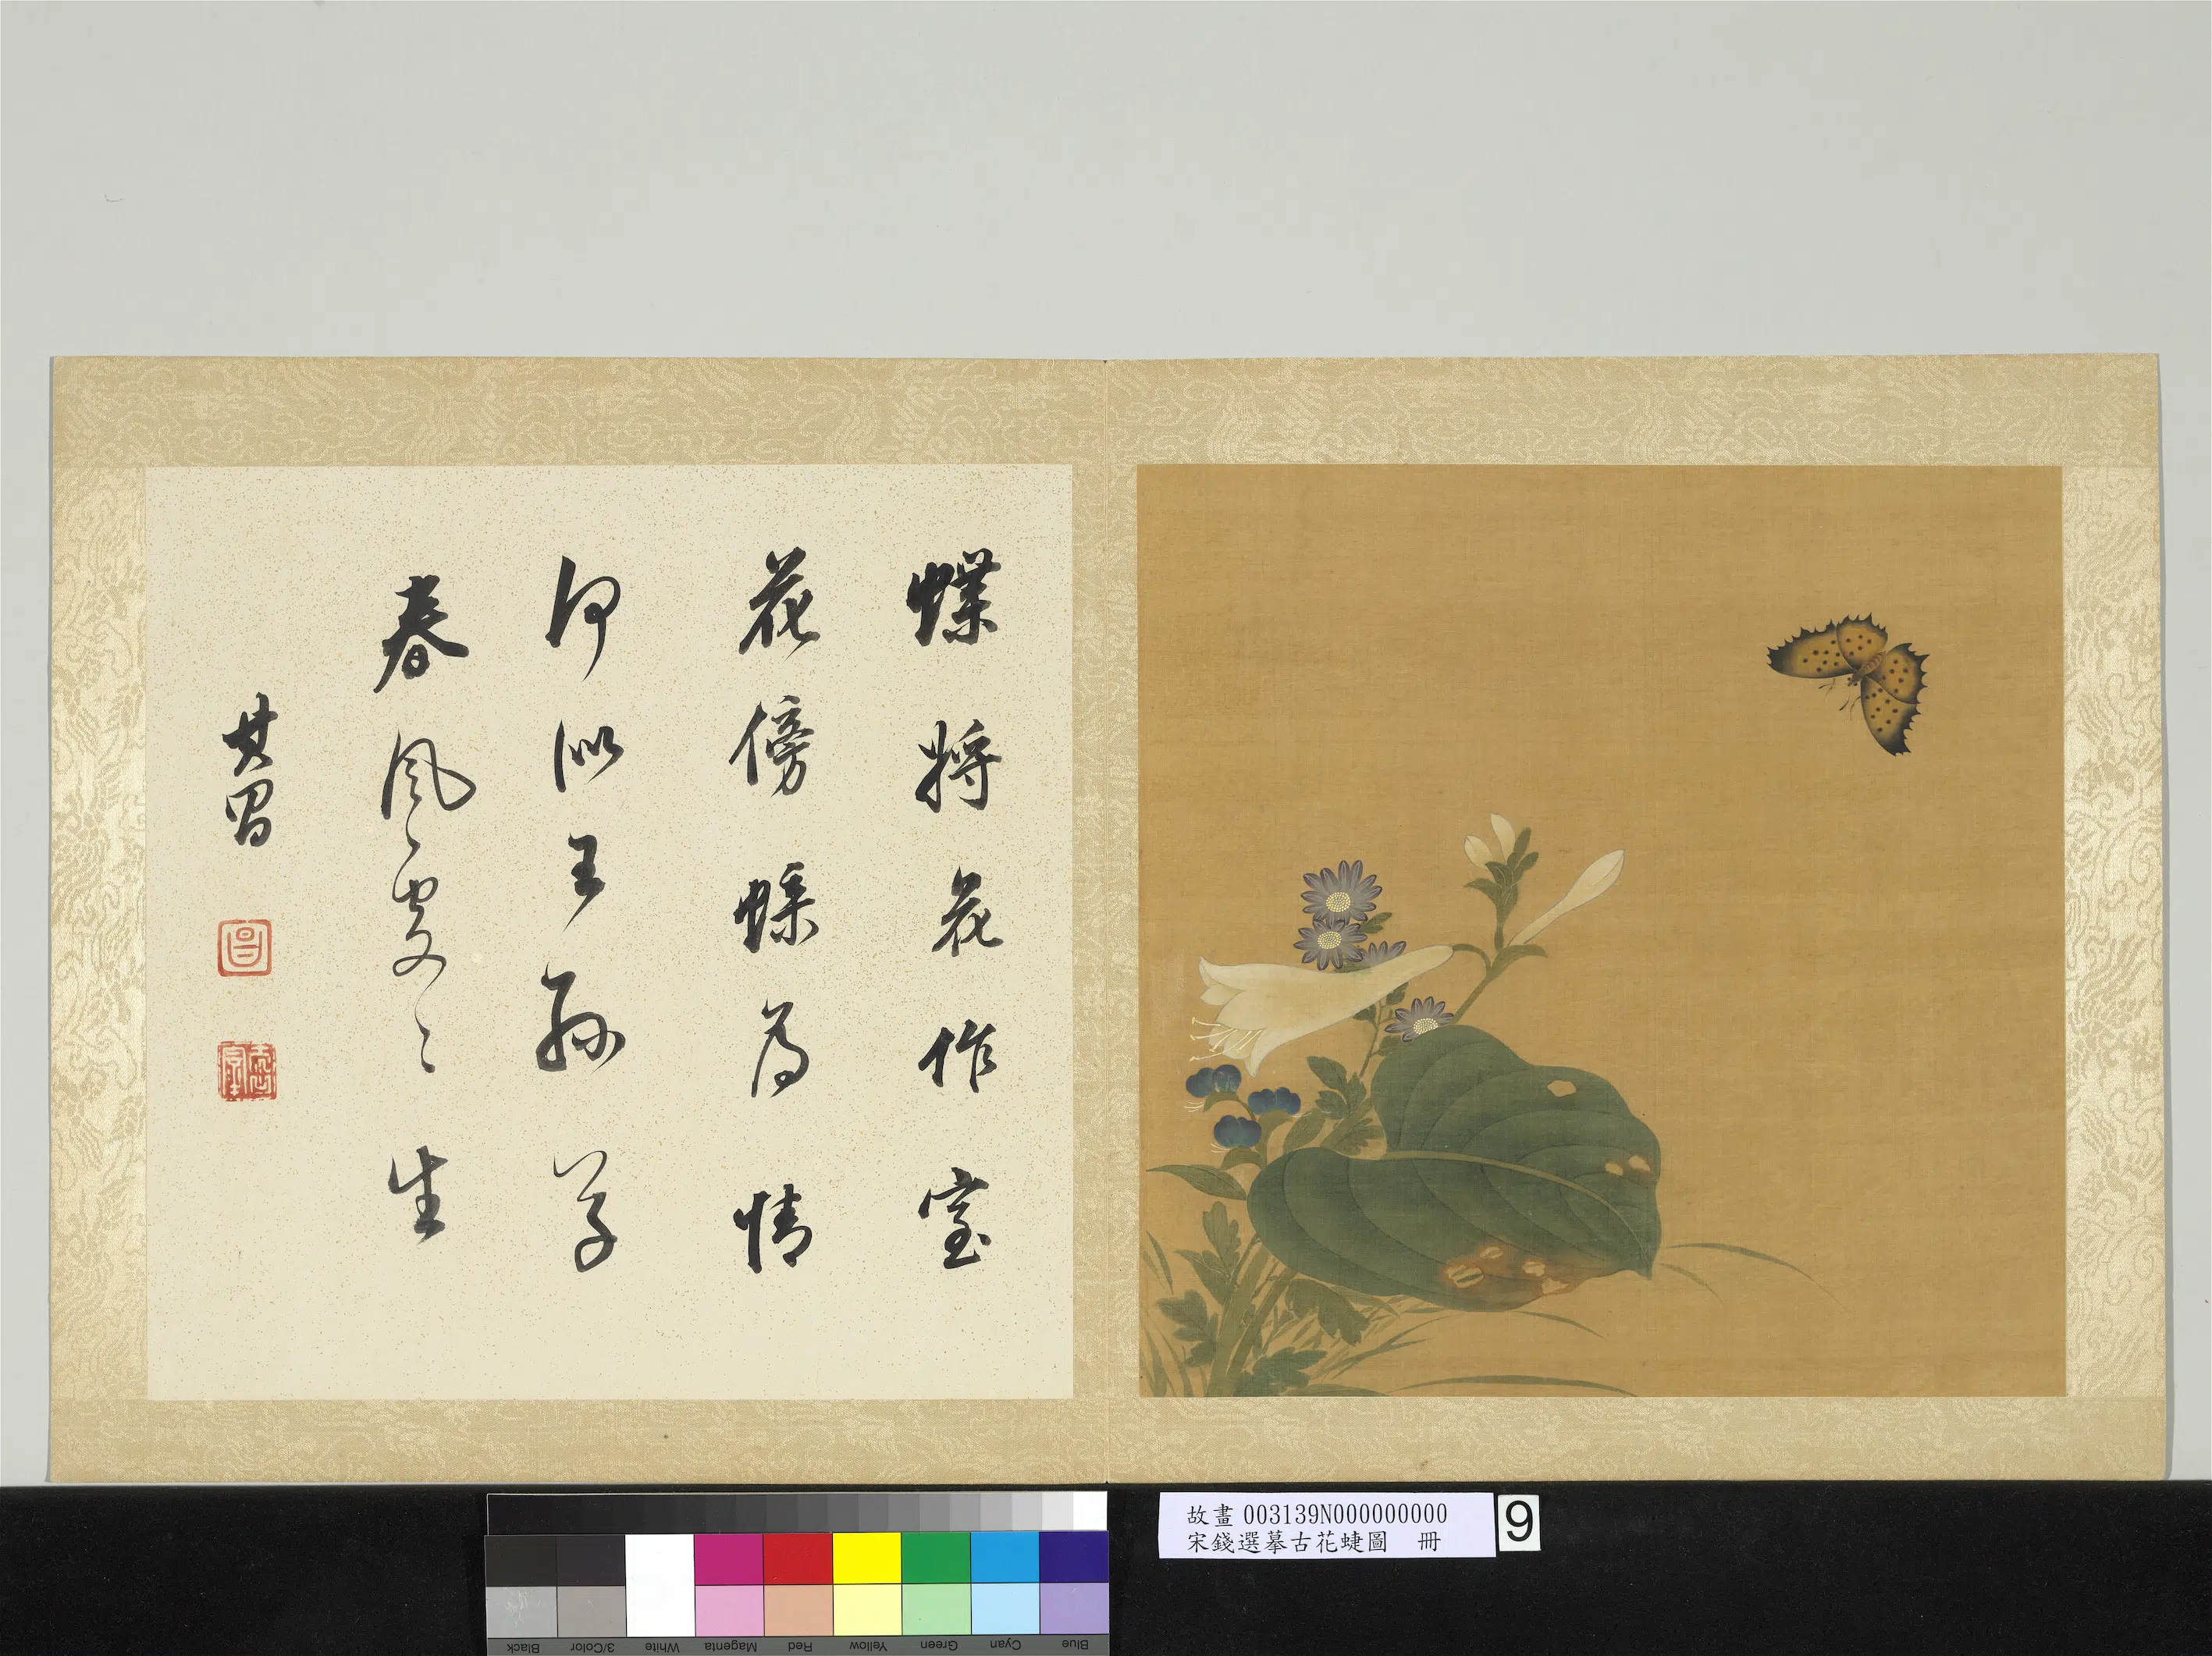 蝶將花作室
花傍蝶為情
何似王孫草
春風處〻生
其昌
昌
故畫 003139N000000000
宋錢選摹古花蜨圖 冊
9
Black
3/Color
White
Magenta
Red
Yellow
Green
Cyan
Blue